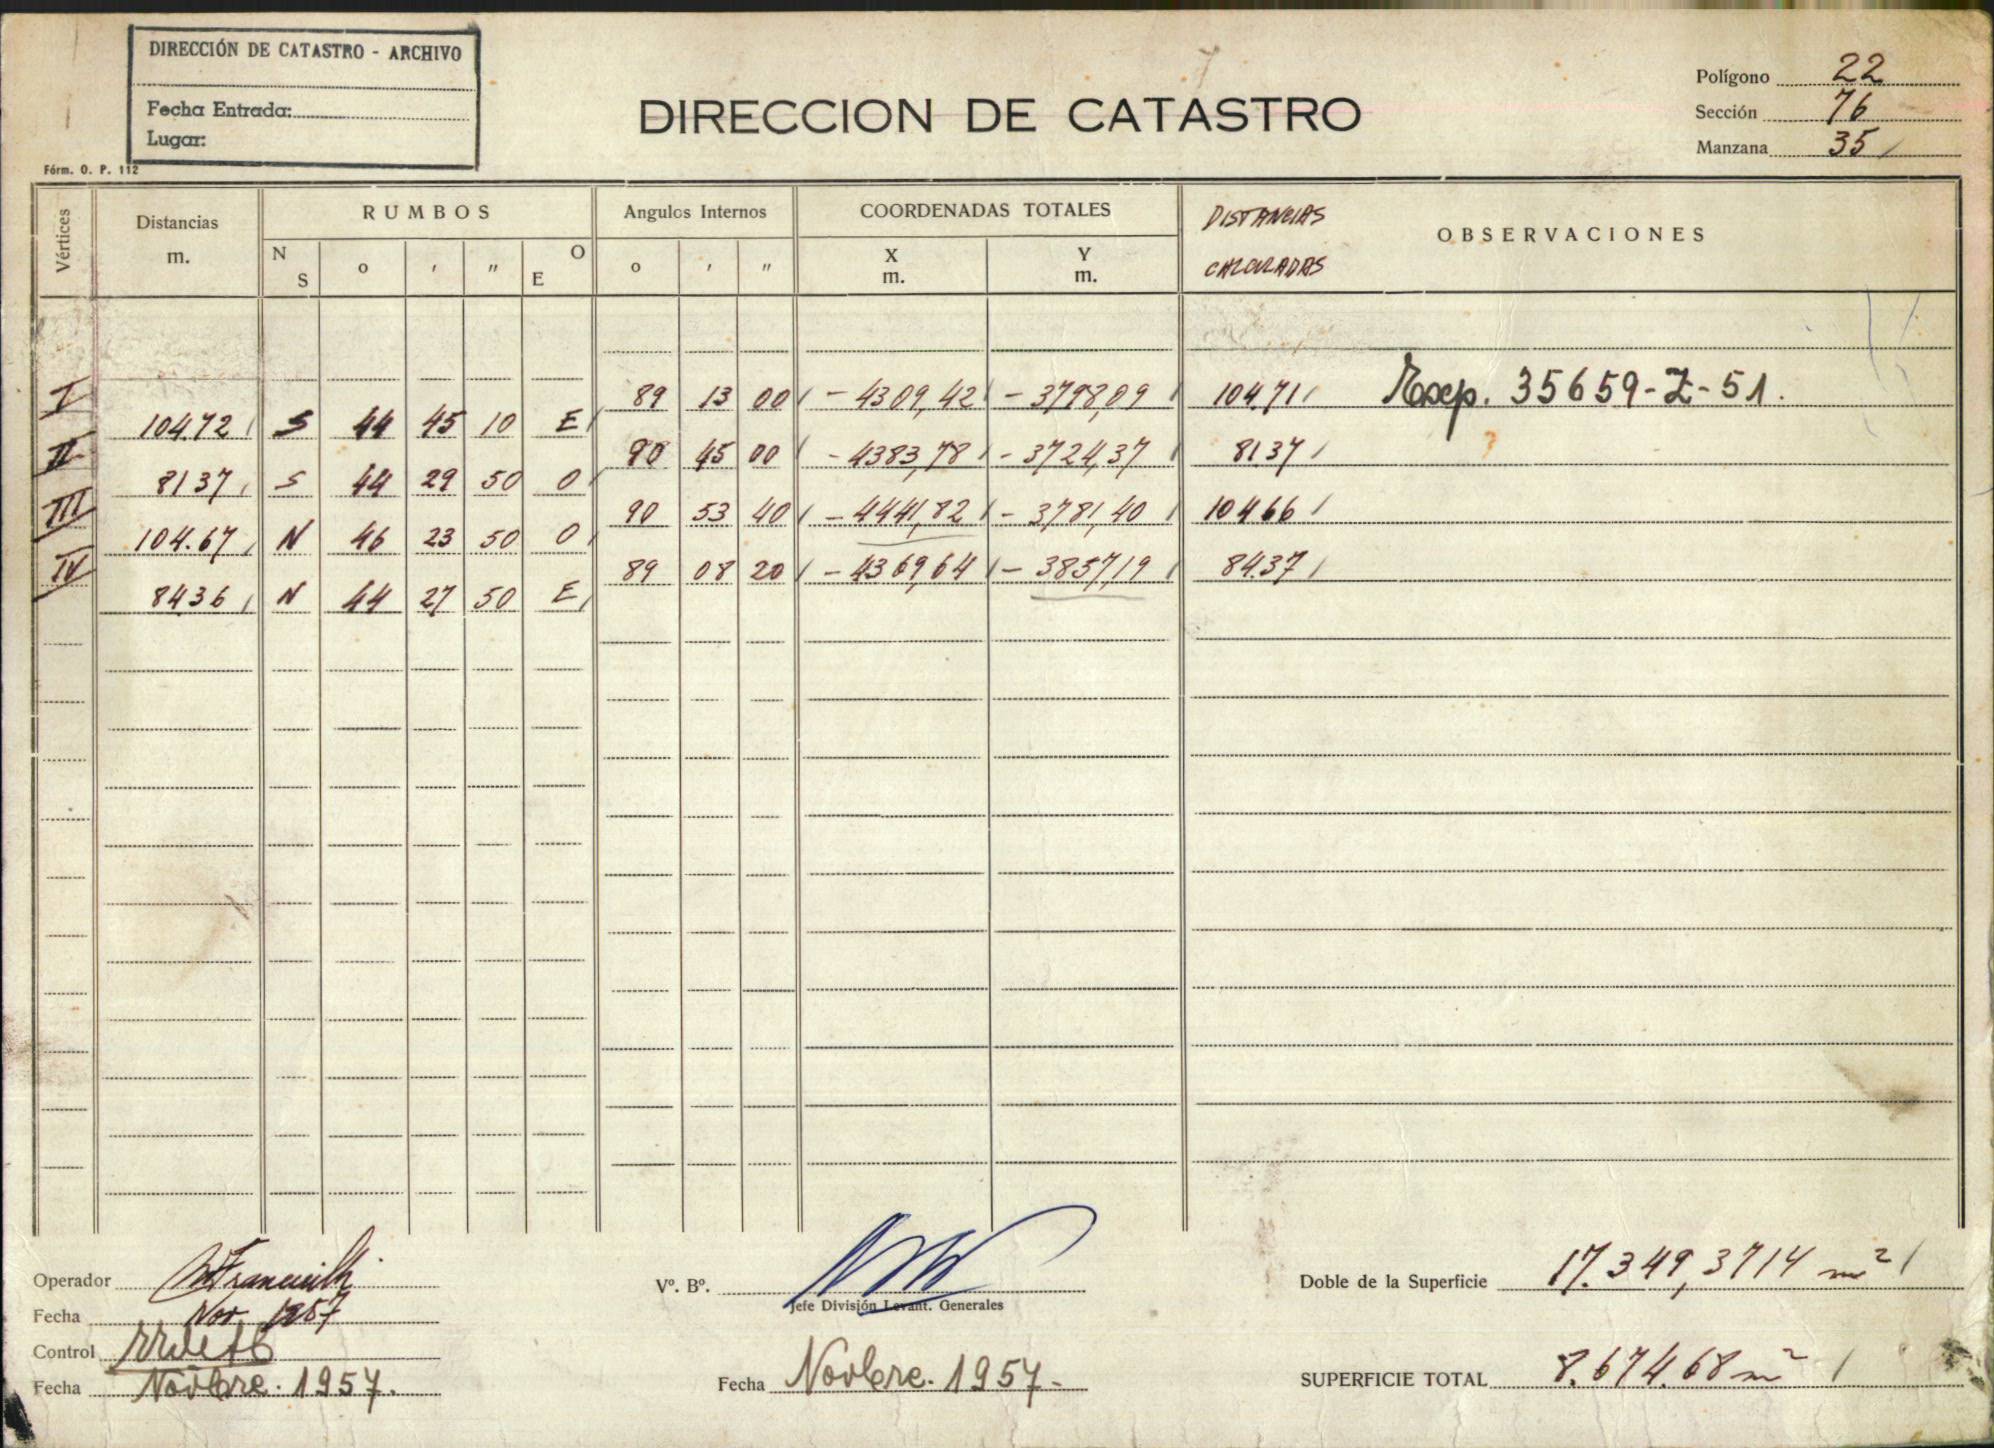 DIRECCIÓN DE CATASTRO - ARCHIVO
Fecha Entrada:
Lugar:
Fórm. O. P. 112
DIRECCION DE CATASTRO
Polígono 22
Sección 76
Manzana 35
Vértices
Distancias m.
RUMBOS
N S o ' " O E
Angulos Internos
o ' "
COORDENADAS TOTALES
X m. Y m.
DISTANCIAS CALCULADAS
OBSERVACIONES
I 89 13 00 - 4309,42 - 3798,09 104.71 Exp. 35659-Z-51.
104.72 S 44 45 10 E
II 90 45 00 - 4383,78 - 3724,37 81.37
81.37 S 44 29 50 O
III 90 53 40 - 4441,82 - 3781,40 104.66
104.67 N 46 23 50 O
IV 89 08 20 - 4369,64 - 3857,19 84.37
84.36 N 44 27 50 E
Operador
Fecha Nov. 1957
Control
Fecha Novbre. 1957.
Vº. Bº.
Jefe División Levant. Generales
Fecha Novbre. 1957.
Doble de la Superficie 17.349,3714 m²
SUPERFICIE TOTAL 8.674.68 m²